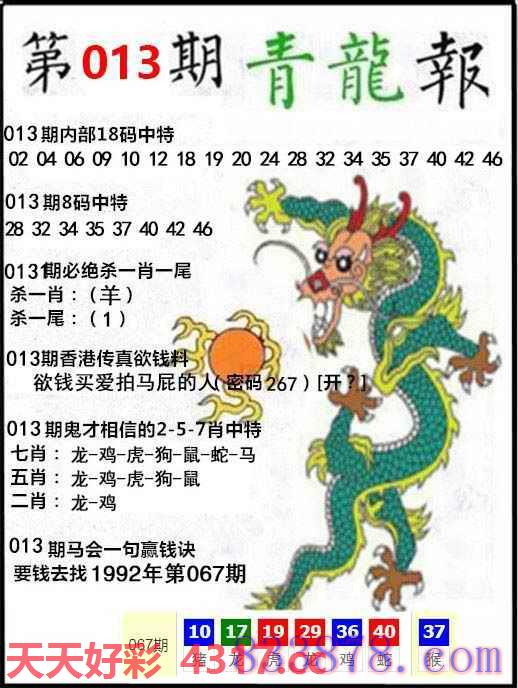 第013期青龍報
013期内部18码中特
02 04 06 09 10 12 18 19 20 24 28 32 34 35 37 40 42 46
013期8码中特
28 32 34 35 37 40 42 46
013期必绝杀一肖一尾
杀一肖：（羊）
杀一尾：（1）
013期香港传真欲钱料
欲钱买爱拍马屁的人（密码267）[开？]
013期鬼才相信的2-5-7肖中特
七肖：龙-鸡-虎-狗-鼠-蛇-马
五肖：龙-鸡-虎-狗-鼠
二肖：龙-鸡
013期马会一句赢钱诀
要钱去找1992年第067期
067期 10 17 19 29 36 40 37
猪 龙 虎 龙 鸡 蛇 猴
天天好彩 4317.cc
823878.com